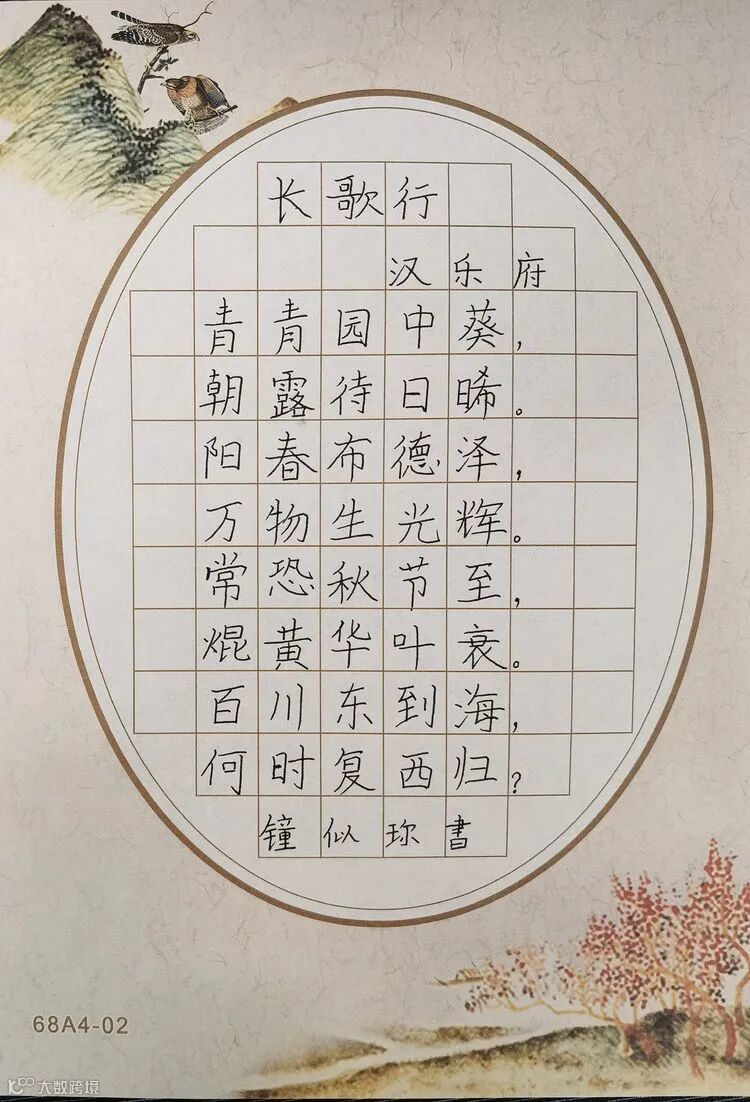 长歌行
汉乐府
青青园中葵，
朝露待日晞。
阳春布德泽，
万物生光辉。
常恐秋节至，
焜黄华叶衰。
百川东到海，
何时复西归？
鐘似珎書
68A4-02
大数跨境